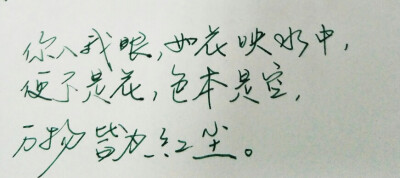 你入我眼,如花映水中,
便不是花,色本是空,
万物皆为红尘。